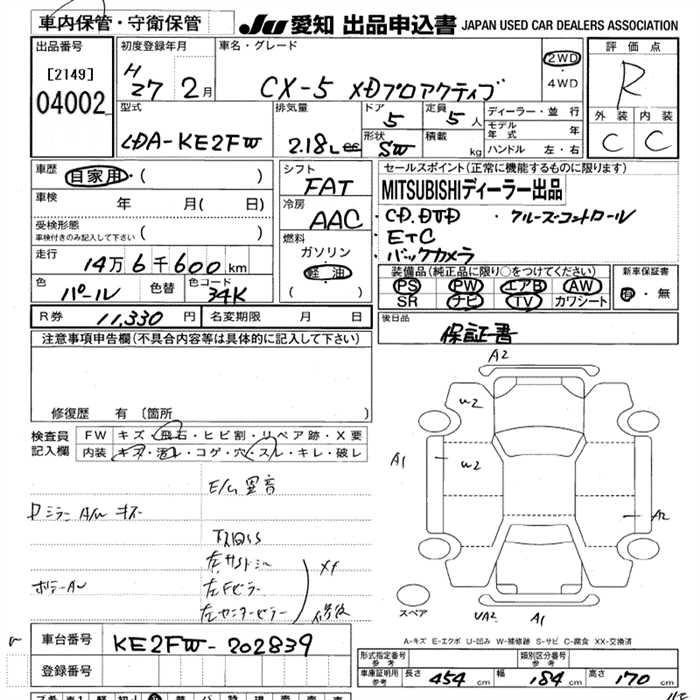 車内保管・守衛保管
JU 愛知 出品申込書 JAPAN USED CAR DEALERS ASSOCIATION
出品番号
[2149]
04002
初度登録年月
H27 2月
車名・グレード
CX-5 XDプロアクティブ
2WD
・4WD
評価点
R
外装 内装
C C
型式
LDA-KE2FW
排気量
2.18L
ドア
5
定員
5人
形状
SW
積載
kg
ディーラー・並行
モデル年式 年
ハンドル 左・右
車歴
自家用・( )
車検
年 月( 日)
受検形態
車検付きのみ記入して下さい ( )
走行
14万6千600km
色
パール
色替
色コード
34K
シフト
FAT
冷房
AAC
燃料
ガソリン
軽油
( )
セールスポイント(正常に機能するものに限ります)
MITSUBISHIディーラー出品
・CD.DVD ・クルーズコントロール
ETC
バックカメラ
装備品(純正品に限り○をつけてください)
PS PW エアB AW
SR ナビ TV カワシート
新車保証書
有・無
R券 11,330円
名変期限 月 日
後日品
保証書
注意事項申告欄(不具合内容等は具体的に記入して下さい)
修復歴 有(箇所 )
検査員記入欄
FW キズ・飛石・ヒビ割・リペア跡・X要
内装 キズ・汚レ・コゲ・穴・スレ・キレ・破レ
E/G異音
A2
W2
A1
W2
A2
スペア
UA2 A1
A-キズ E-エクボ U-凹み W-補修跡 S-サビ C-腐食 XX-交換済
車台番号
KE2FW-202839
登録番号
形式指定番号 参考
類別区分番号 参考
車庫証明用 参考
長さ 454 幅 184 高さ 170 cm